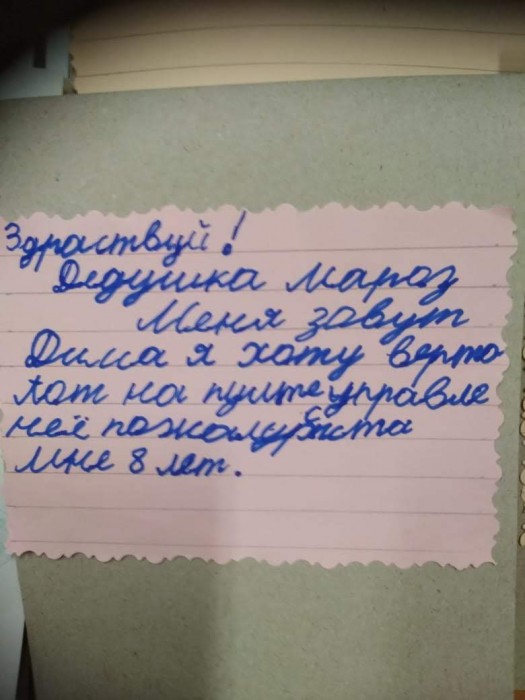 Здраствуй!
Дедушка мароз
Меня завут
Дима я хочу верто
лот на пульте управле
неё пожалуста
мне 8 лет.